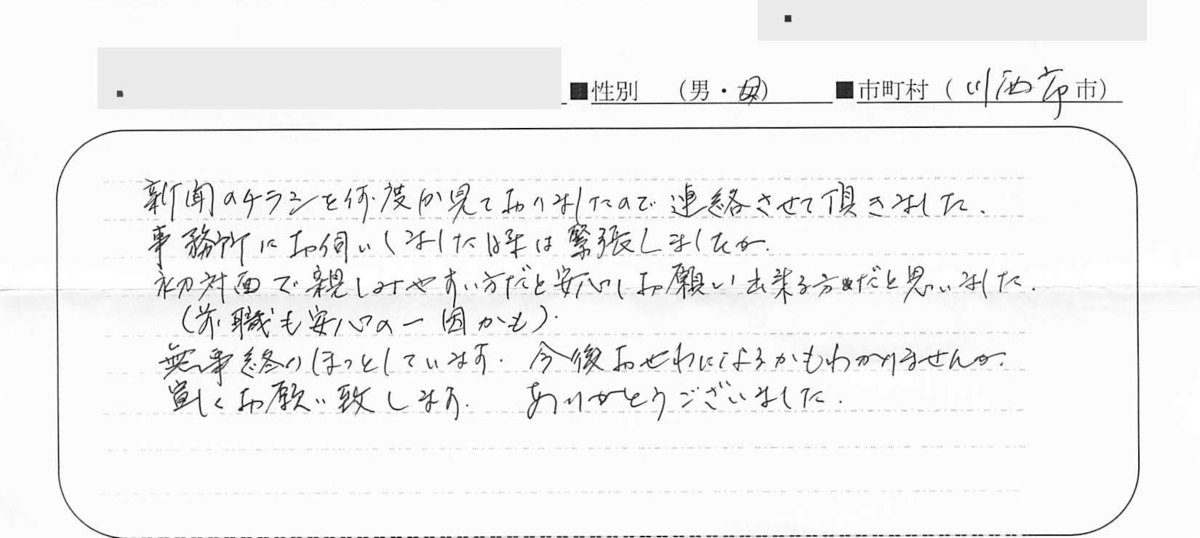 ■性別 （男・女） ■市町村（川西市市）
新聞のチラシを何度か見ておりましたので連絡させて頂きました.
事務所にお伺いしました時は緊張しましたが.
初対面で親しみやすい方だと安心しお願い出来る方だと思いました.
(前職も安心の一因かも).
無事終りほっとしています. 今後おせわになるかもわかりませんが.
宜しくお願い致します. ありがとうございました.